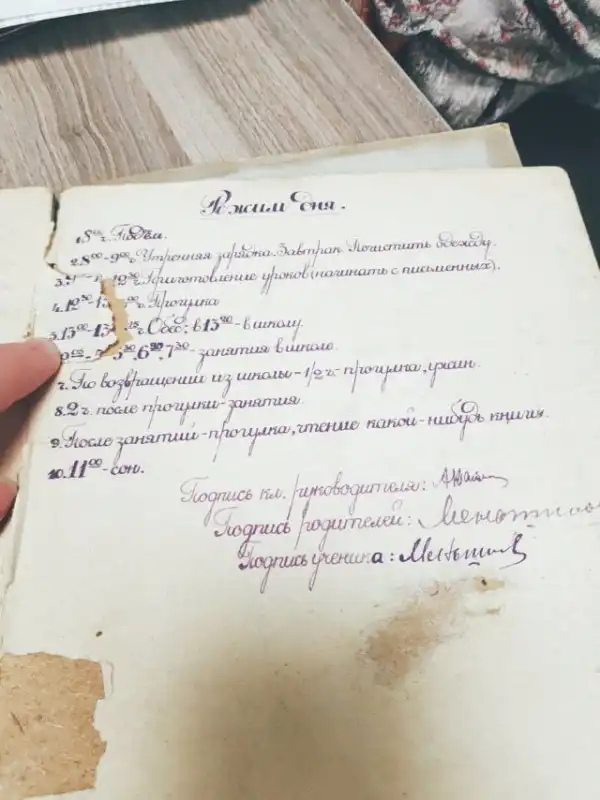 Режим дня.
1. 8⁰⁰ч. Подъём.
2. 8⁰⁰-9⁰⁰ч. Утренняя зарядка. Завтрак. Почистить одежду.
3. 12³⁰ч. Приготовление уроков (начинать с письменных).
4. 12³⁰-13⁰⁰ч. Прогулка
5. 13⁰⁰-13¹⁵ч. Обед; в 13²⁰-в школу.
6³⁰, 7³⁰-занятия в школе.
7. По возвращении из школы-1/2ч-прогулка, ужин.
8. 2ч. после прогулки-занятия.
9. После занятий-прогулка, чтение какой-нибудь книги.
10. 11⁰⁰-сон.
Подпись кл. руководителя:
Подпись родителей:
Подпись ученика: